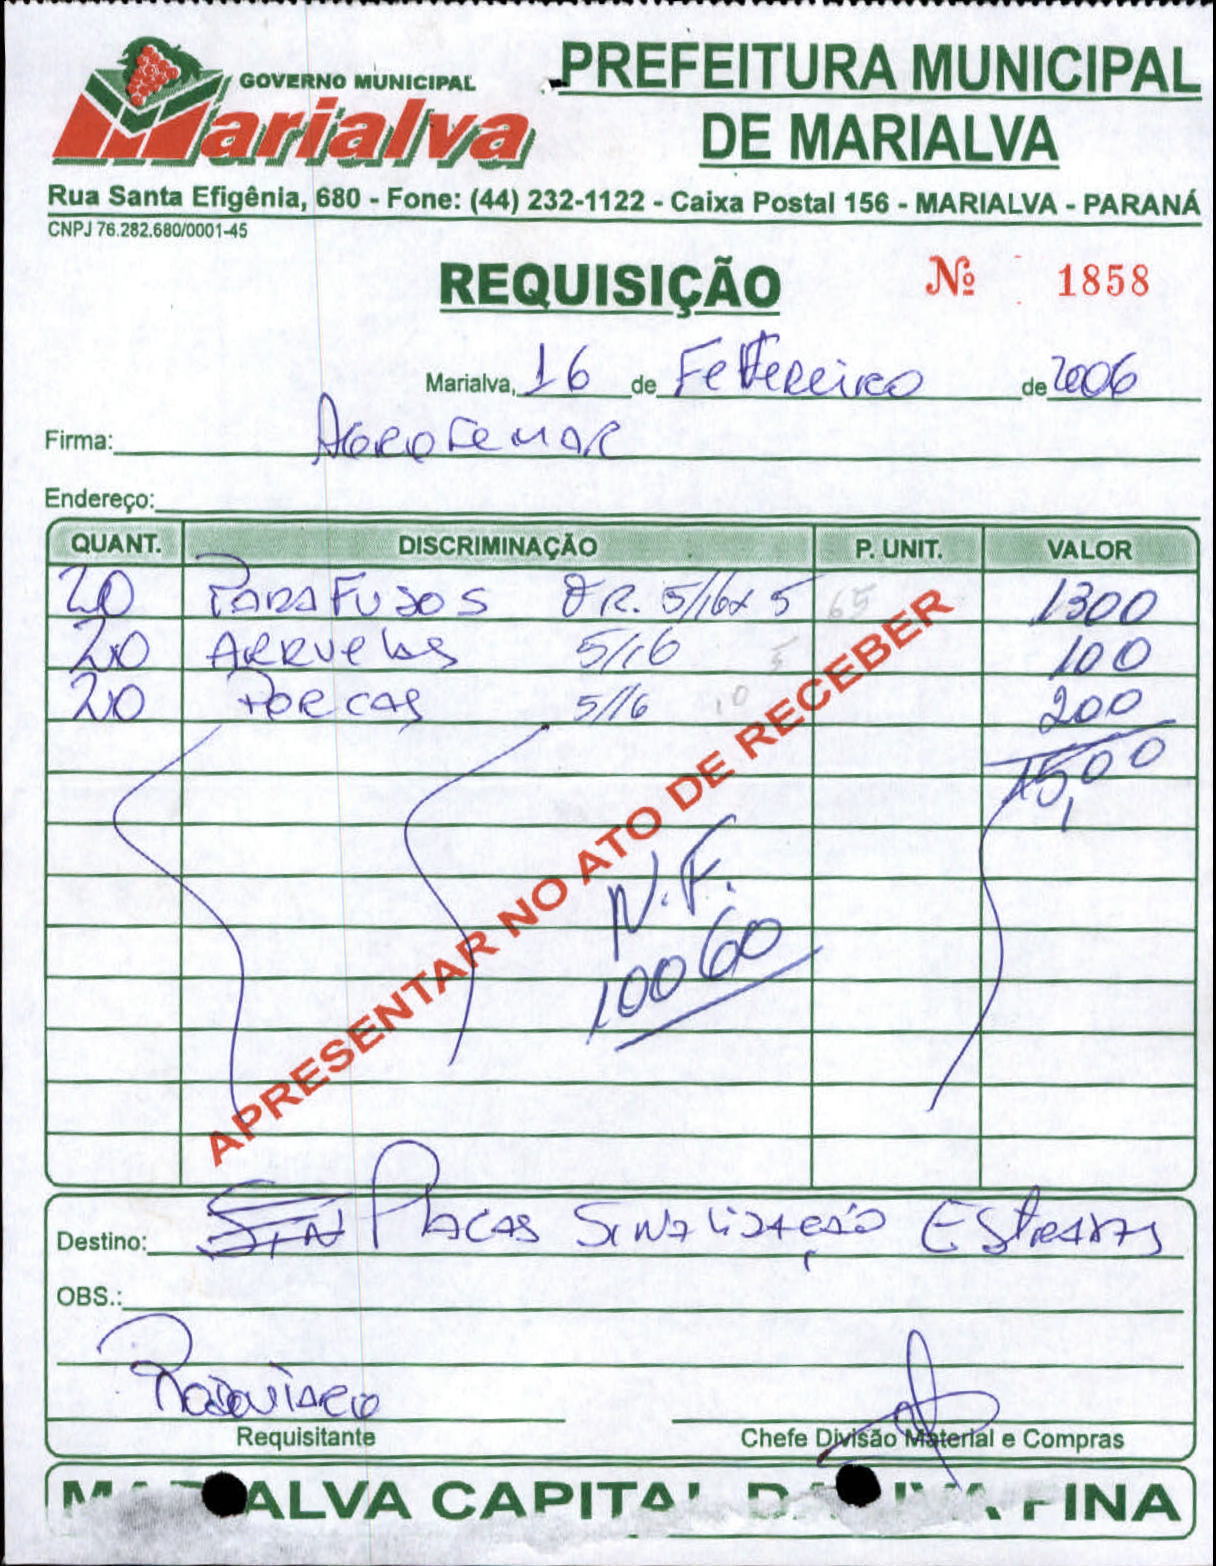 GOVERNO MUNICIPAL
Marialva
PREFEITURA MUNICIPAL
DE MARIALVA
Rua Santa Efigênia, 680 - Fone: (44) 232-1122 - Caixa Postal 156 - MARIALVA - PARANÁ
CNPJ 76.282.680/0001-45
REQUISIÇÃO Nº 1858
Marialva, 16 de Fevereiro de 2006
Firma: Agrofemar
Endereço:
QUANT. DISCRIMINAÇÃO P. UNIT. VALOR
20 PARAFUSOS FR. 5/16x5 65 1300
20 ARRUELAS 5/16 5 100
20 PORCAS 5/16 10 200
15,00
APRESENTAR NO ATO DE RECEBER
N.F.
10060
Destino: PLACAS SINALIZAÇÃO ESTRADAS
OBS.:
Requisitante Chefe Divisão Material e Compras
ALVA CAPITAL DA FINA